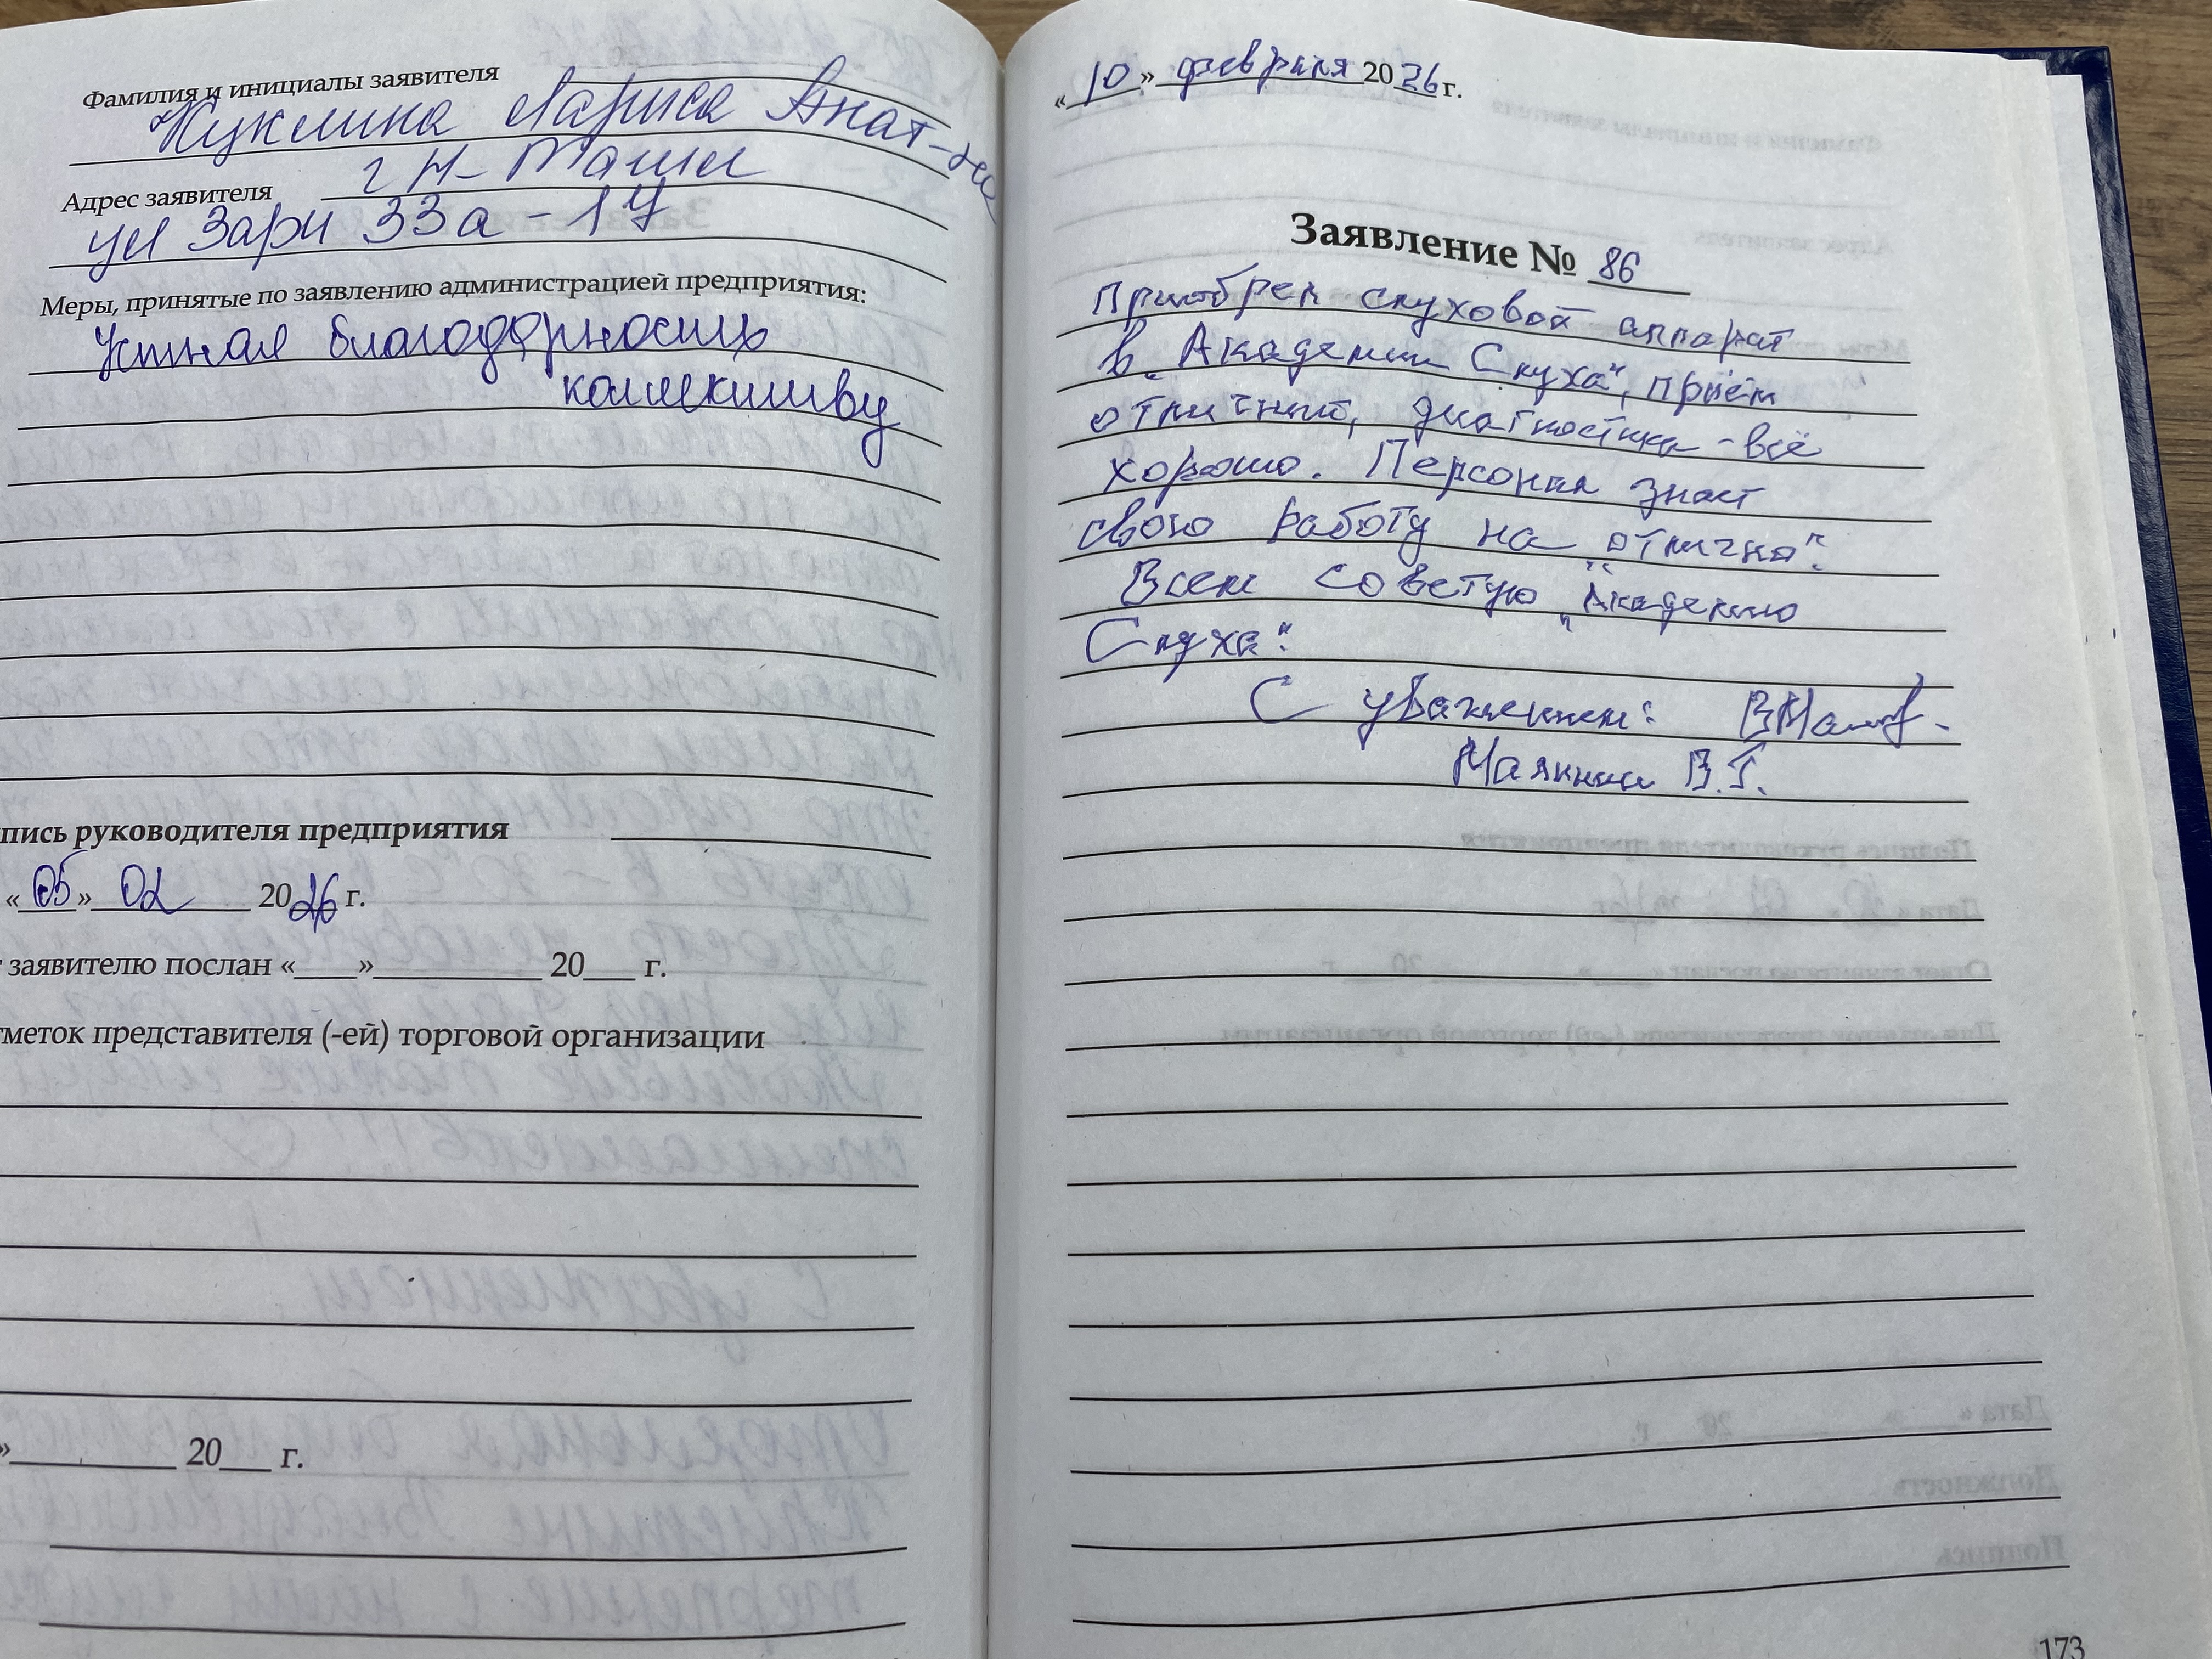 Фамилия и инициалы заявителя
Куклина Лариса Анат-на
Адрес заявителя г Н-Тагил
ул Зари 33а - 17
Меры, принятые по заявлению администрацией предприятия:
Устная благодарность
коллективу
пись руководителя предприятия
«05» 02 2026 г.
заявителю послан «___»__________ 20___ г.
меток представителя (-ей) торговой организации
»__________ 20___ г.
«10» февраля 2026 г.
Заявление № 86
Приобрел слуховой аппарат
в „Академии Слуха", приём
отличный, диагностика - всё
хорошо. Персонал знает
свою работу на „отлично".
Всем советую „Академию
Слуха".
С уважением:
Малинин В.Г.
173